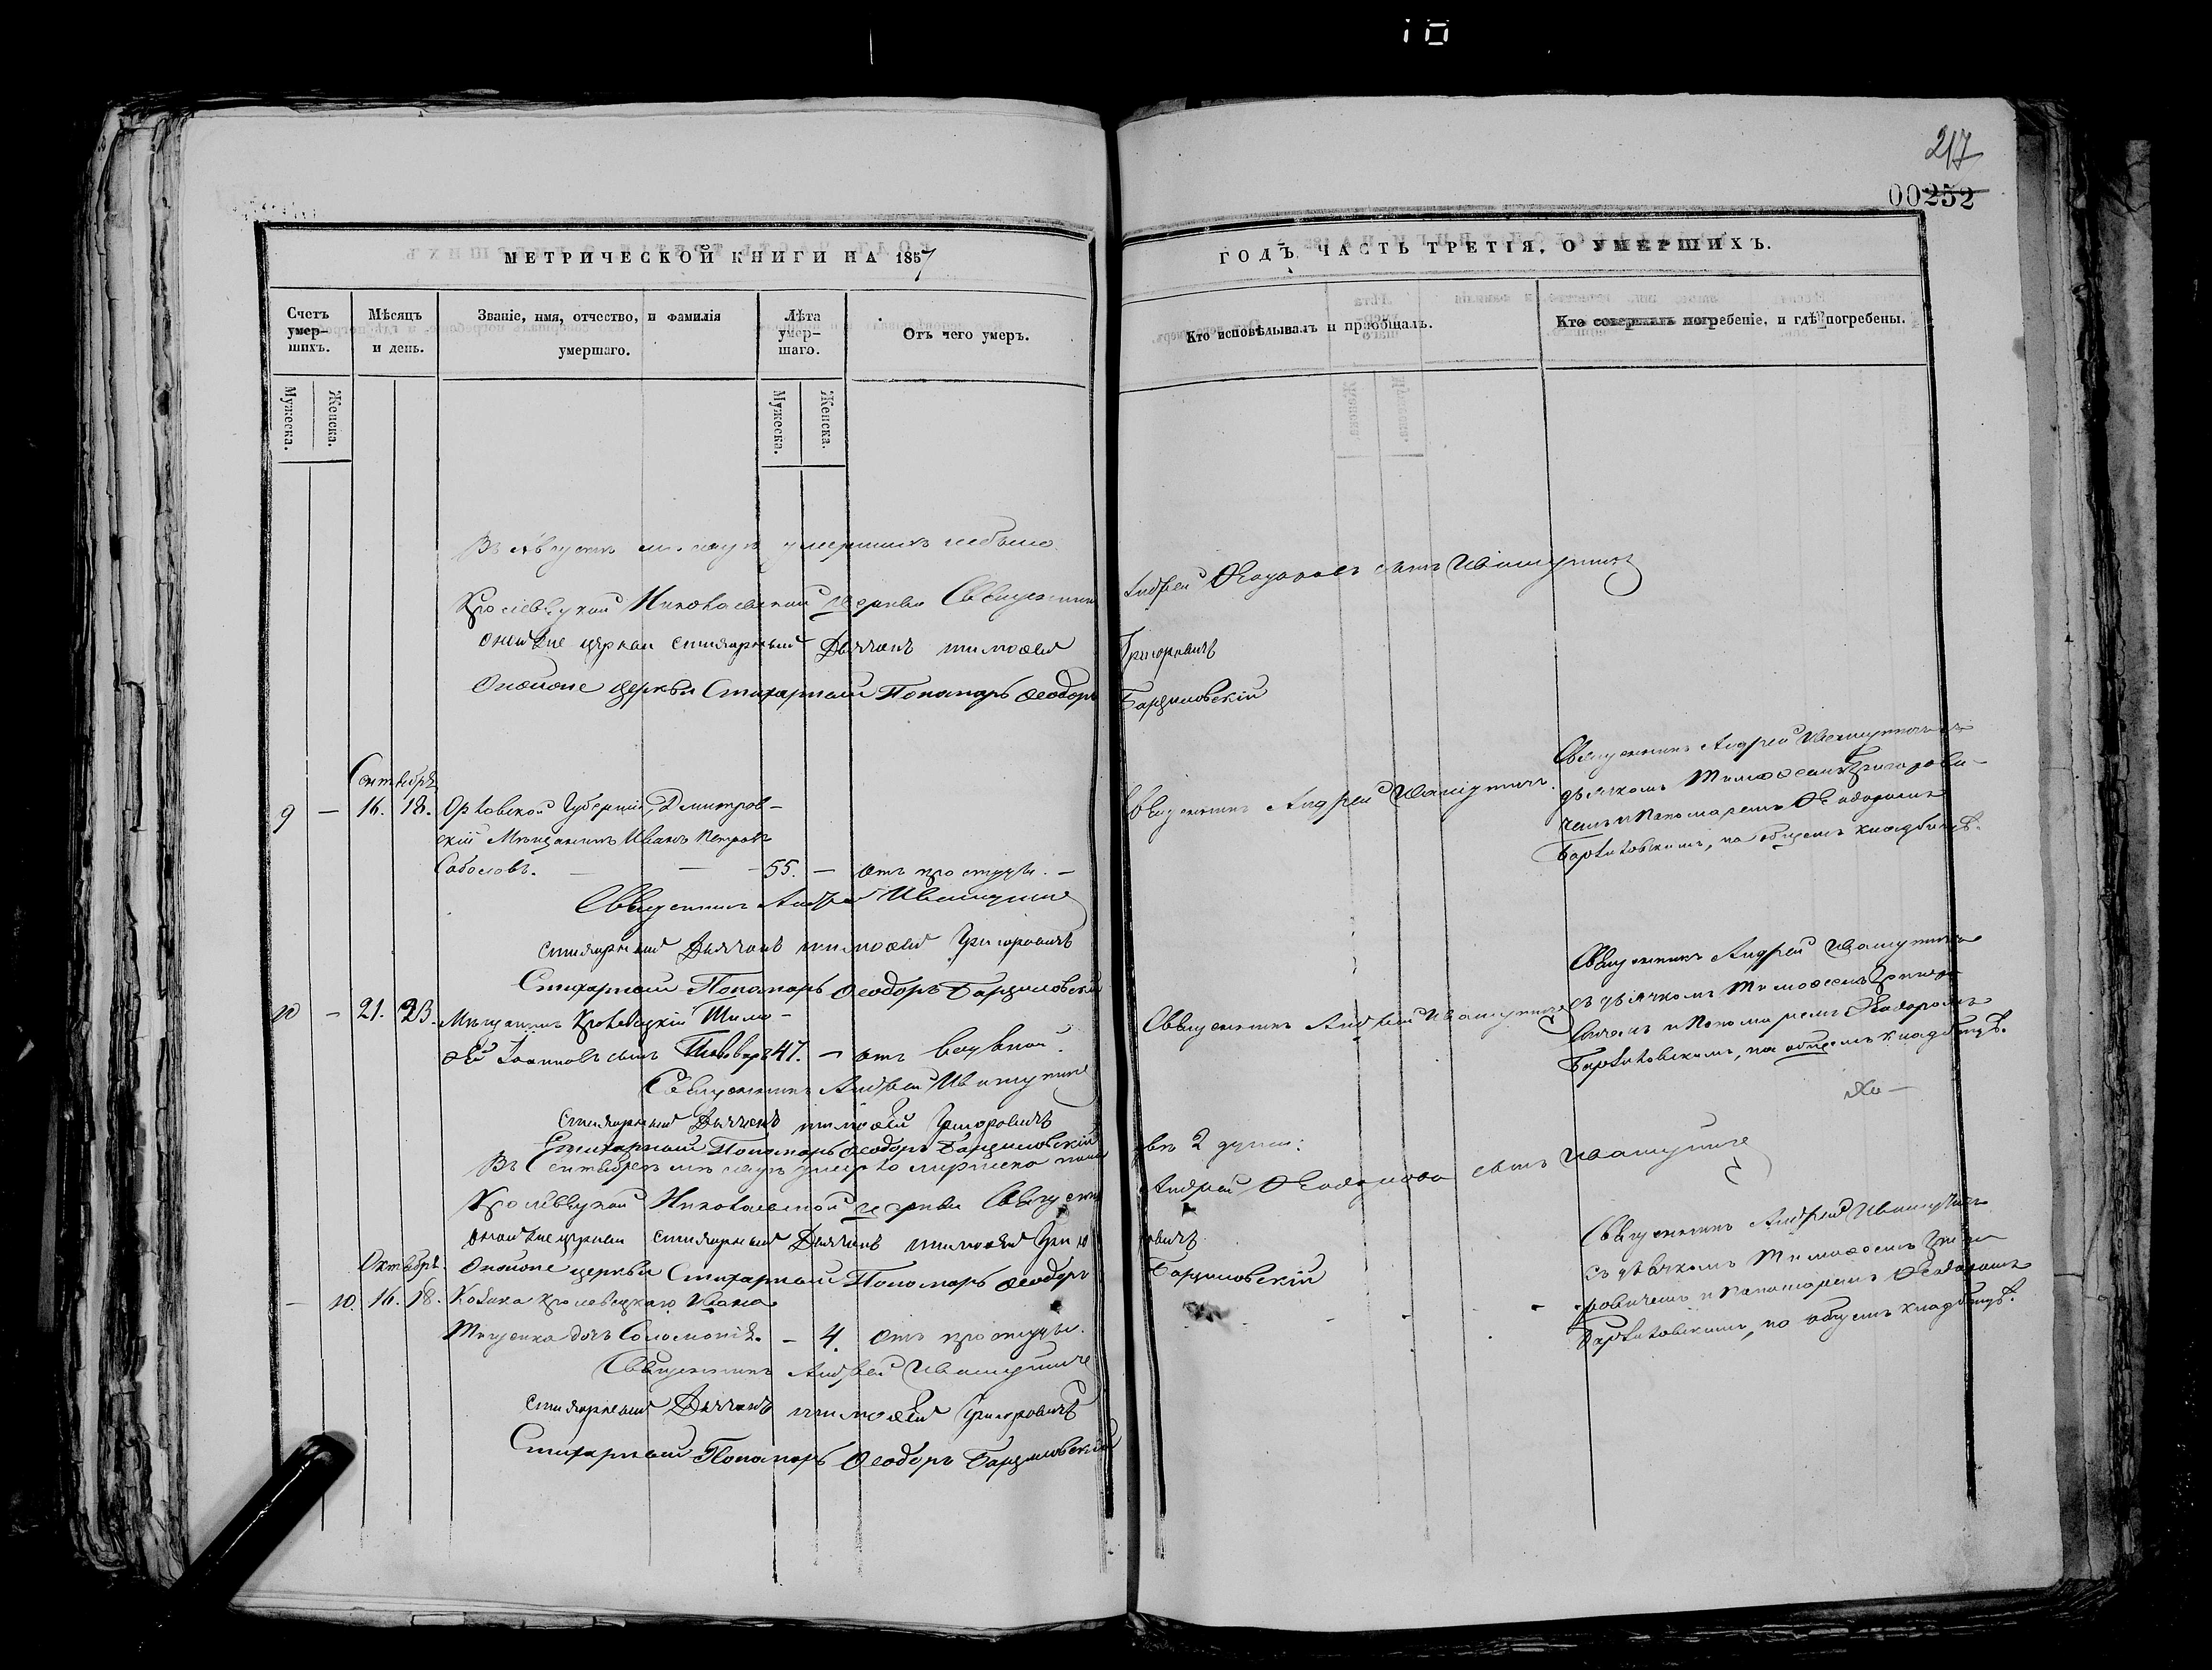 217
00252
МЕТРИЧЕСКОЙ КНИГИ НА 1857
ГОДЪ, ЧАСТЬ ТРЕТІЯ, О УМЕРШИХЪ.
Счетъ умер-шихъ.
Мѣсяцъ и день.
Званіе, имя, отчество, и фамилія умершаго.
Лѣта умер-шаго.
Отъ чего умеръ.
Кто исповѣдывалъ и пріобщалъ.
Кто совершалъ погребеніе, и гдѣ погребены.
Мужеска.
Женска.
Мужеска.
Женска.
Въ Августѣ мѣсяцѣ умершихъ небыло
Кролевецкой Николаевской церкви Священник Андрей Феодоровъ сынъ Ивашутичъ
оной же церкви стихарный Дьячокъ Тимофей Григоровичъ
Оной же церкви Стихарный Пономарь Феодоръ
Сентября
9 — 16. 18. Орловской Губерніи, Дмитров-
скій Мѣщанинъ Иванъ Петровъ
55. — отъ простуды. —
Священникъ Андрей Ивашутичъ
Священникъ Андрей Ивашутичъ съ
дьячкомъ Тимофеемъ Григорови-
чемъ и Пономаремъ Феодоромъ
на общемъ кладбищѣ.
Священникъ Андрей Ивашутичъ
стихарный Дьячокъ Тимофей Григоровичъ
Стихарный Пономарь Феодоръ
10 — 21. 23. Мѣщанинъ Кролевецкій Тимо-
фей Іоанновъ сынъ 47. — отъ водяной.
Священникъ Андрей Ивашутичъ
Священникъ Андрей Ивашутичъ
съ дьячкомъ Тимофеемъ Григоро-
вичемъ и Пономаремъ Феодоромъ
на общемъ кладбищѣ.
Священникъ Андрей Ивашутичъ
стихарный Дьячокъ Тимофей Григоровичъ
Стихарный Пономарь Феодоръ
Въ Сентябрѣ мѣсяцѣ умерло мужеска пола
2 души:
Кролевецкой Николаевской церкви Священник Андрей Феодоровъ сынъ Ивашутичъ
оной же церкви стихарный Дьячокъ Тимофей Григоровичъ
Оной же церкви Стихарный Пономарь Феодоръ
Октября
— 10. 16. 18. Козака Кролевецкаго Ивана
дочь Соломонія. — 4. отъ простуды.
Священникъ Андрей Ивашутичъ
съ дьячкомъ Тимофеемъ Григо-
ровичемъ и Пономаремъ Феодоромъ
на общемъ кладбищѣ.
Священникъ Андрей Ивашутичъ
стихарный Дьячокъ Тимофей Григоровичъ
Стихарный Пономарь Феодоръ